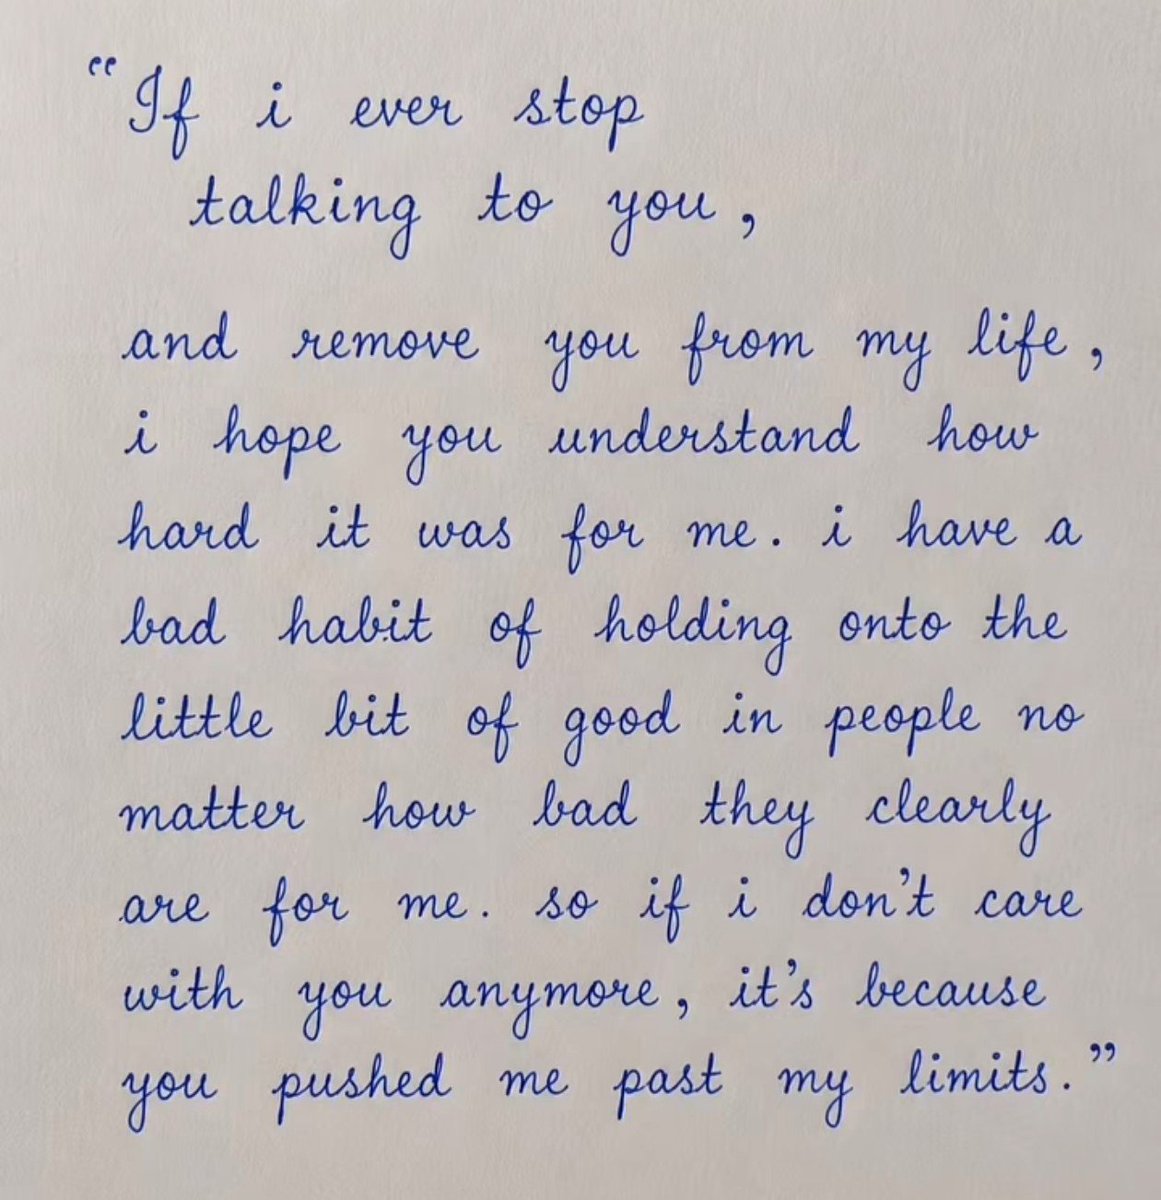 “If i ever stop
talking to you,
and remove you from my life,
i hope you understand how
hard it was for me. i have a
bad habit of holding onto the
little bit of good in people no
matter how bad they clearly
are for me. so if i don’t care
with you anymore, it’s because
you pushed me past my limits.”